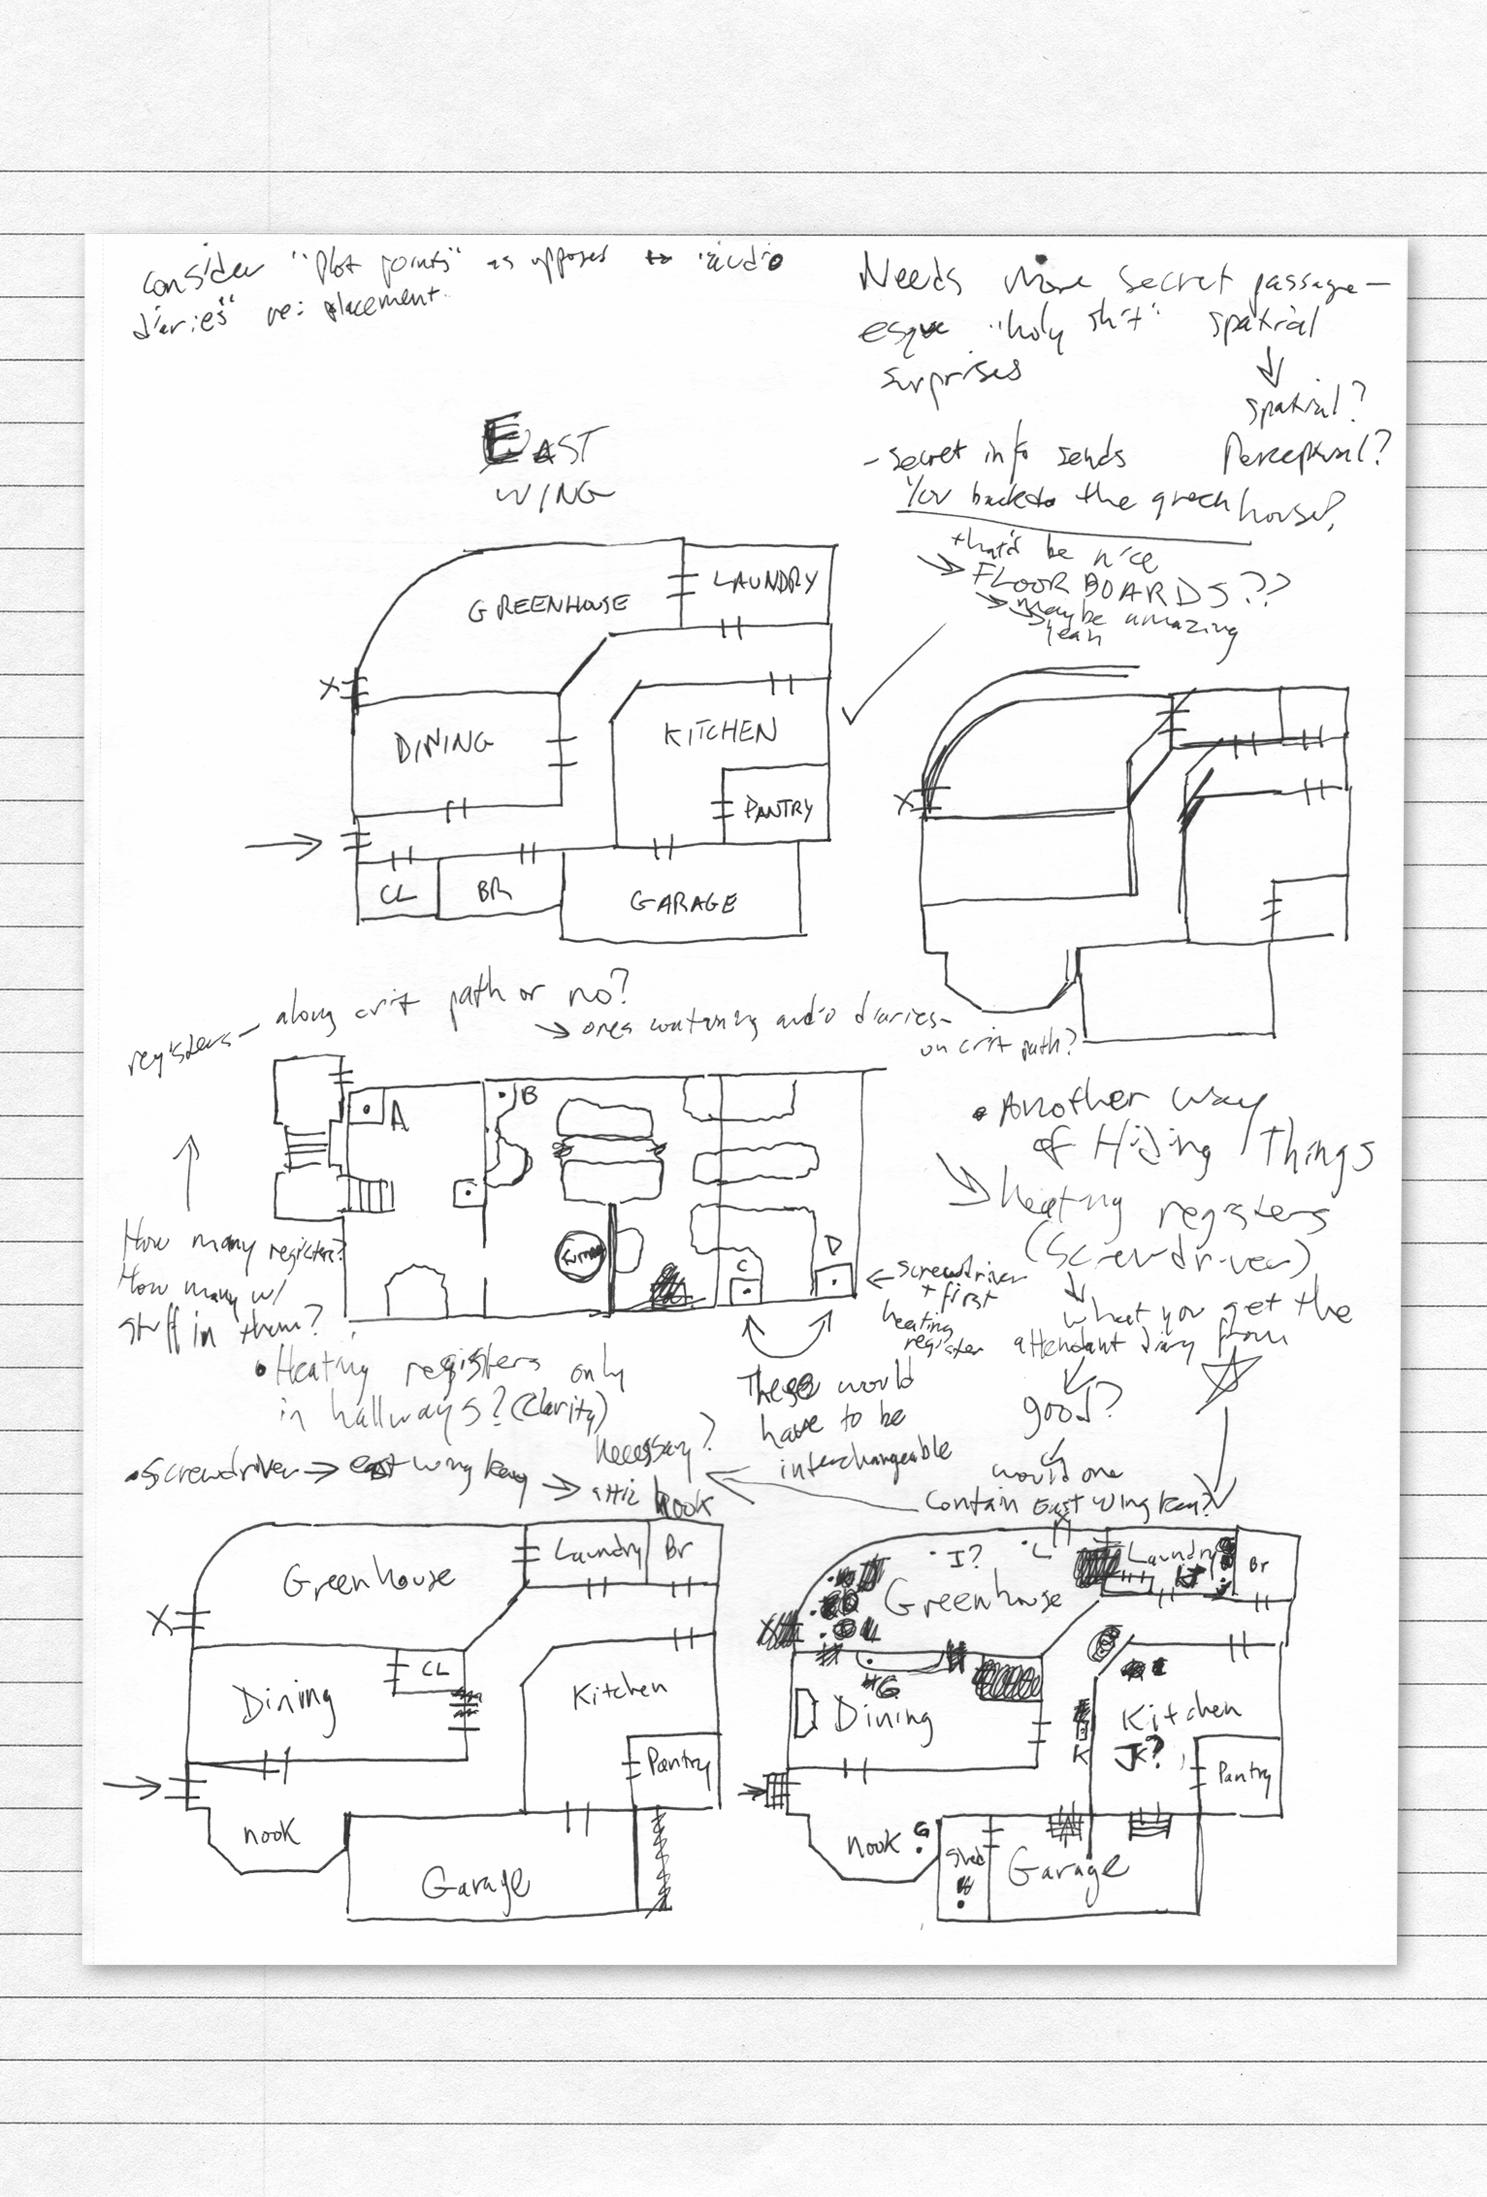 consider "plot points" as opposed to "audio
diaries" re: placement.
Needs more secret passage-
esque "holy shit" spatial
surprises
spatial?
Perceptual?
- secret info sends
you back to the greenhouse?
that'd be nice
FLOORBOARDS??
maybe amazing
yeah
EAST
WING
GREENHOUSE
LAUNDRY
X
DINING
KITCHEN
PANTRY
CL
BR
GARAGE
X
registers - along crit path or no?
ones containing audio diaries -
on crit path?
A
B
Furnace
C
D
How many registers?
How many w/
stuff in them?
• Another way
of Hiding Things
heating registers
(Screwdriver)
what you get the
attendant diary from
good?
would one
contain East wing key?
screwdriver
+ first
heating
register
These would
have to be
interchangeable
• Heating registers only
in hallways? (Clarity)
necessary?
• Screwdriver → east wing key → attic hook
Greenhouse
Laundry
Br
X
CL
Dining
Kitchen
Pantry
nook
Garage
I?
L
Laundry
Br
Greenhouse
G
Dining
K
Kitchen
JK?
Pantry
nook
G
Shed
Garage